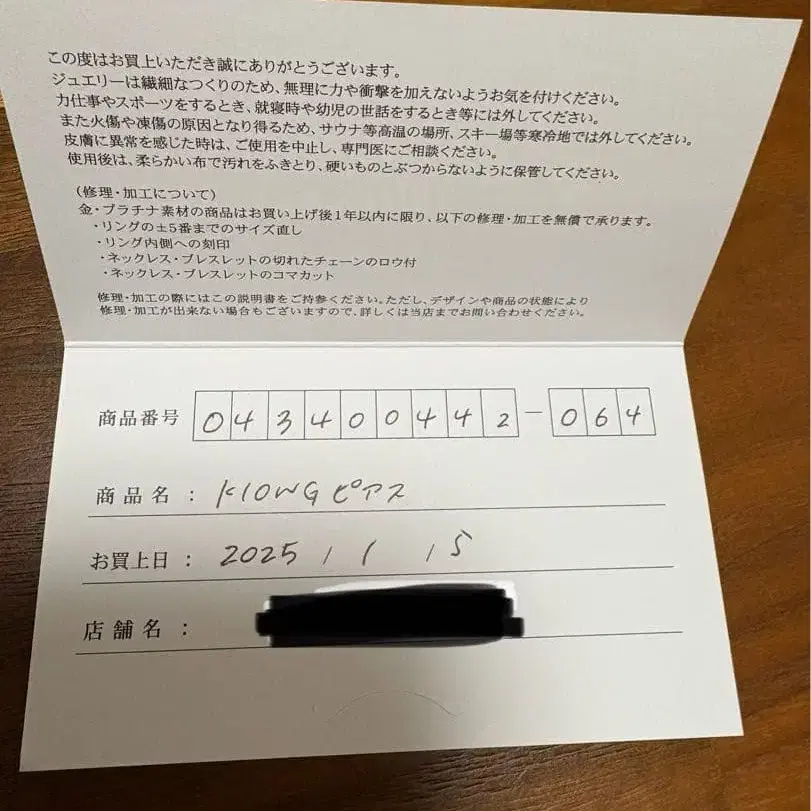 この度はお買上いただき誠にありがとうございます。
ジュエリーは繊細なつくりのため、無理に力や衝撃を加えないようお気を付けください。
力仕事やスポーツをするとき、就寝時や幼児の世話をするとき等には外してください。
また火傷や凍傷の原因となり得るため、サウナ等高温の場所、スキー場等寒冷地では外してください。
皮膚に異常を感じた時は、ご使用を中止し、専門医にご相談ください。
使用後は、柔らかい布で汚れをふきとり、硬いものとぶつからないように保管してください。
（修理・加工について）
金・プラチナ素材の商品はお買い上げ後1年以内に限り、以下の修理・加工を無償で承ります。
・リングの±5番までのサイズ直し
・リング内側への刻印
・ネックレス・ブレスレットの切れたチェーンのロウ付
・ネックレス・ブレスレットのコマカット
修理・加工の際にはこの説明書をご持参ください。ただし、デザインや商品の状態により
修理・加工が出来ない場合もございますので、詳しくは当店までお問い合わせください。
商品番号 043400442-064
商品名：K10WGピアス
お買上日：2025/1/5
店舗名：